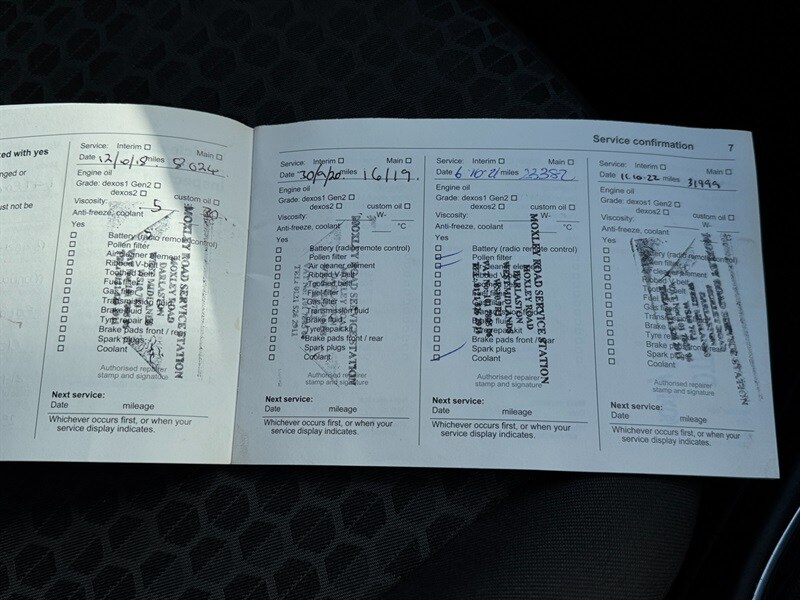 ked with yes
nged or
ust not be
Service: Interim Main
Date 12/10/18 miles 8024
Engine oil
Grade: dexos1 Gen2
dexos2 custom oil
Viscosity: 5 30
Anti-freeze, coolant
Yes
Battery (radio remote control)
Pollen filter
Air cleaner element
Ribbed V-belt
Toothed belt
Fuel filter
Gas filter
Transmission fluid
Brake fluid
Tyre repair kit
Brake pads front / rear
Spark plugs
Coolant
MOXLEY ROAD SERVICE STATION
MOXLEY ROAD
DARLASTON
WEST MIDLANDS
Authorised repairer
stamp and signature
Next service:
Date mileage
Whichever occurs first, or when your
service display indicates.
Service confirmation 7
Service: Interim Main
Date 30/9/20 miles 16119.
Engine oil
Grade: dexos1 Gen2
dexos2 custom oil
Viscosity: W-
Anti-freeze, coolant °C
Yes
Battery (radio remote control)
Pollen filter
Air cleaner element
Ribbed V-belt
Toothed belt
Fuel filter
Gas filter
Transmission fluid
Brake fluid
Tyre repair kit
Brake pads front / rear
Spark plugs
Coolant
MOXLEY ROAD SERVICE STATION
MOXLEY ROAD
TEL: 0121 526 2911
Authorised repairer
stamp and signature
Next service:
Date mileage
Whichever occurs first, or when your
service display indicates.
Service: Interim Main
Date 6 10 21 miles 23382
Engine oil
Grade: dexos1 Gen2
dexos2 custom oil
Viscosity: W-
Anti-freeze, coolant °C
Yes
Battery (radio remote control)
Pollen filter
Air cleaner element
Ribbed V-belt
Toothed belt
Fuel filter
Gas filter
Transmission fluid
Brake fluid
Tyre repair kit
Brake pads front / rear
Spark plugs
Coolant
MOXLEY ROAD SERVICE STATION
MOXLEY ROAD
DARLASTON
WEST MIDLANDS
Authorised repairer
stamp and signature
Next service:
Date mileage
Whichever occurs first, or when your
service display indicates.
Service: Interim Main
Date 11.10.22 miles 31999
Engine oil
Grade: dexos1 Gen2
dexos2 custom oil
Viscosity: W-
Anti-freeze, coolant
Yes
Battery (radio remote control)
Pollen filter
Air cleaner element
Ribbed V-belt
Toothed belt
Fuel filter
Gas filter
Transmission fluid
Brake fluid
Tyre repair kit
Brake pads front / rear
Spark plugs
Coolant
SERVICE STATION
Authorised repairer
stamp and signature
Next service:
Date mileage
Whichever occurs first, or when your
service display indicates.